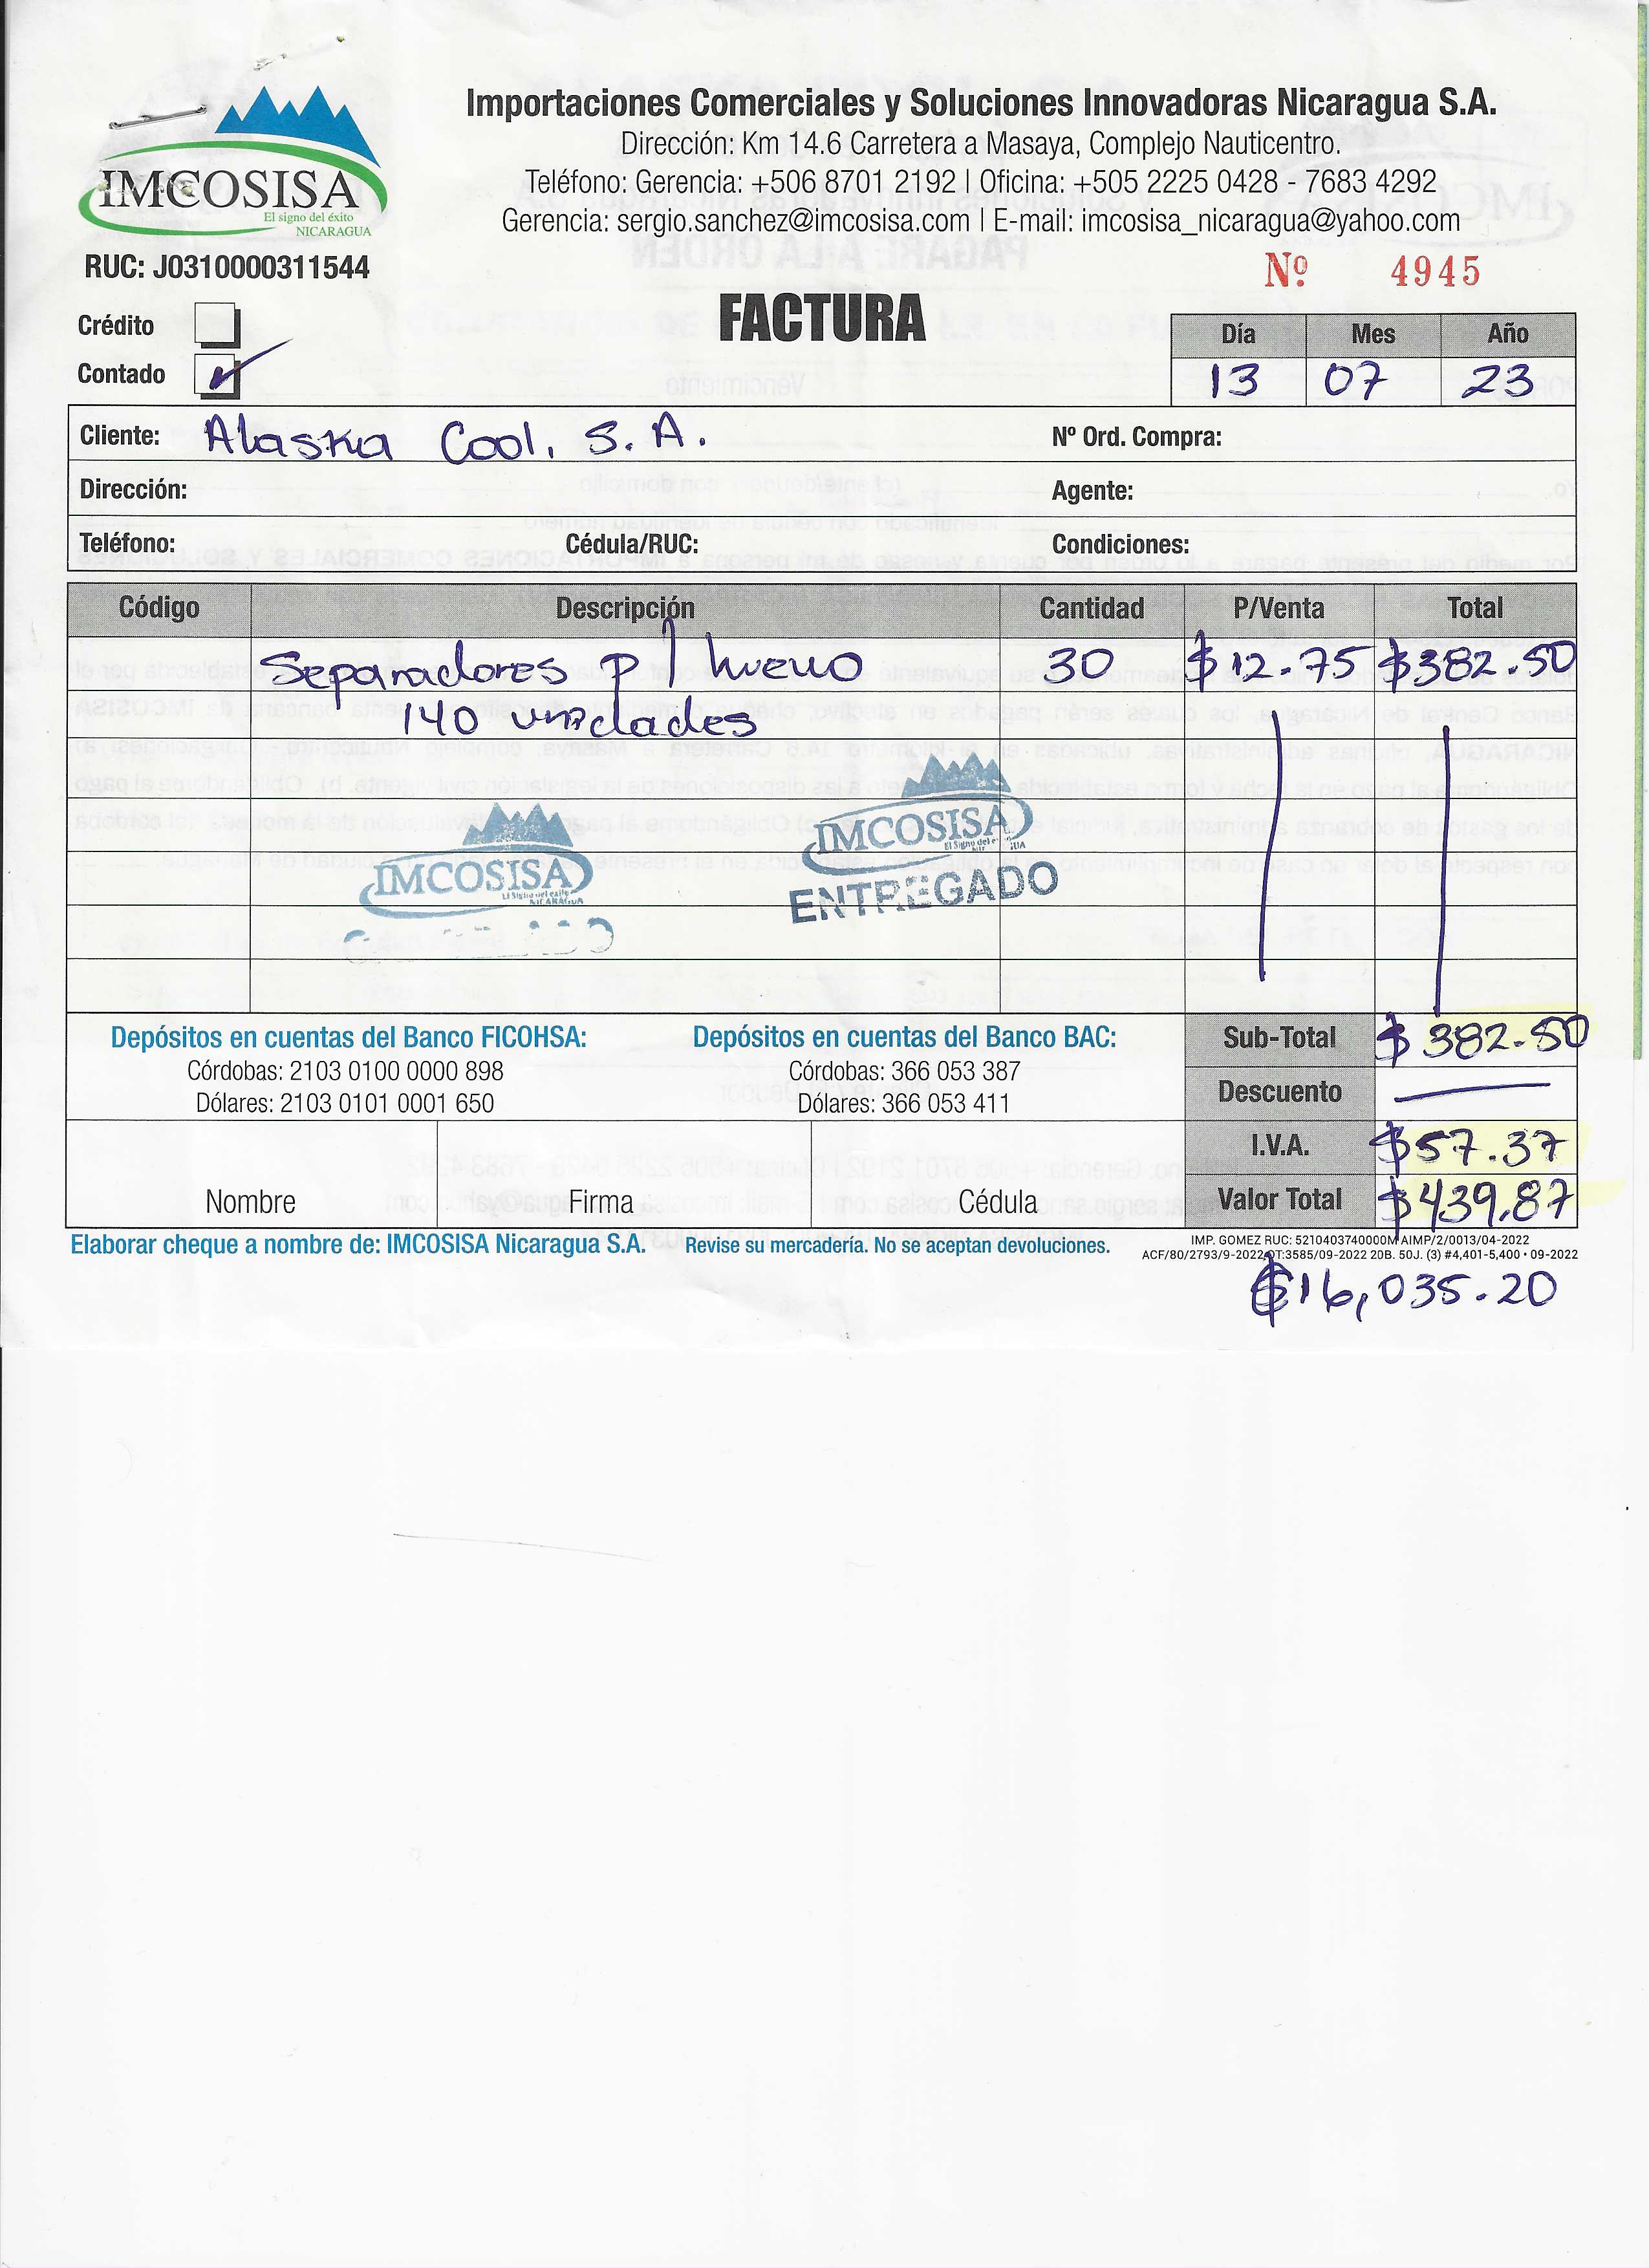 IMCOSISA
El signo del éxito
NICARAGUA
RUC: J0310000311544
Importaciones Comerciales y Soluciones Innovadoras Nicaragua S.A.
Dirección: Km 14.6 Carretera a Masaya, Complejo Nauticentro.
Teléfono: Gerencia: +506 8701 2192 | Oficina: +505 2225 0428 - 7683 4292
Gerencia: sergio.sanchez@imcosisa.com | E-mail: imcosisa_nicaragua@yahoo.com
Nº 4945
FACTURA
Crédito
Contado
Día Mes Año
13 07 23
Cliente: Alaska Cool, S. A. Nº Ord. Compra:
Dirección: Agente:
Teléfono: Cédula/RUC: Condiciones:
Código Descripción Cantidad P/Venta Total
Separadores p/ huevo 30 $12.75 $382.50
140 unidades
IMCOSISA
NICARAGUA
IMCOSISA
ENTREGADO
Depósitos en cuentas del Banco FICOHSA:
Córdobas: 2103 0100 0000 898
Dólares: 2103 0101 0001 650
Depósitos en cuentas del Banco BAC:
Córdobas: 366 053 387
Dólares: 366 053 411
Sub-Total $382.50
Descuento
I.V.A. $57.37
Valor Total $439.87
Nombre Firma Cédula
Elaborar cheque a nombre de: IMCOSISA Nicaragua S.A. Revise su mercadería. No se aceptan devoluciones.
IMP. GOMEZ RUC: 5210403740000M AIMP/2/0013/04-2022
ACF/80/2793/9-2022 OT:3585/09-2022 20B. 50J. (3) #4,401-5,400 • 09-2022
₲16,035.20